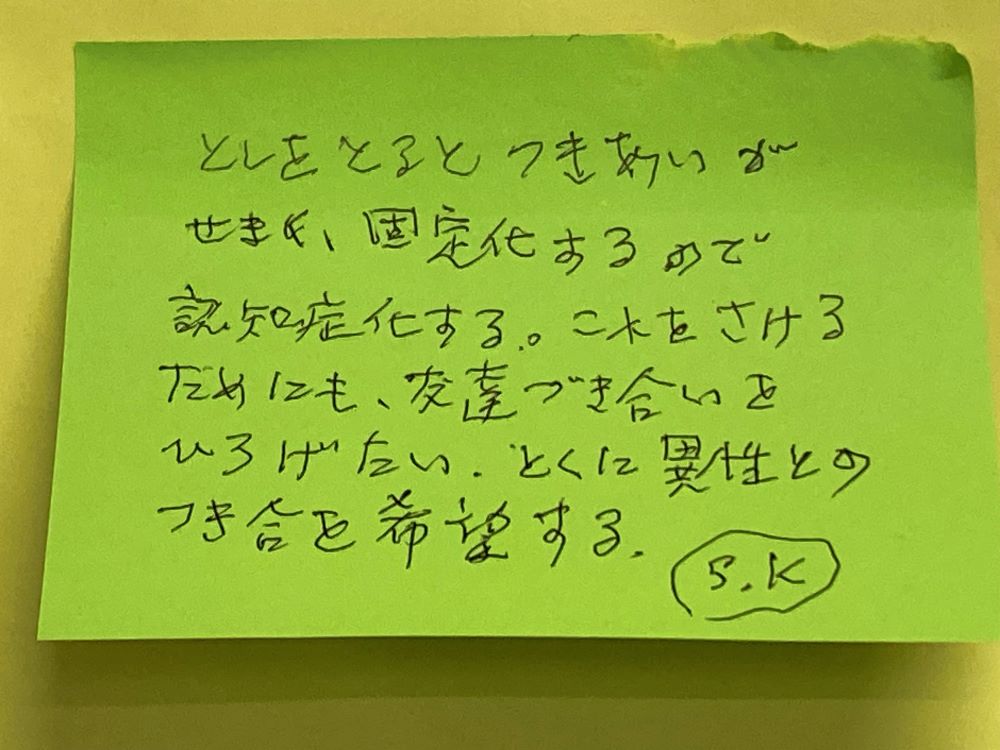 としをとるとつきあいが
せまく、固定化するので
認知症化する。これをさける
ためにも、友達づき合いを
ひろげたい。とくに異性との
つき合を希望する。
S.K